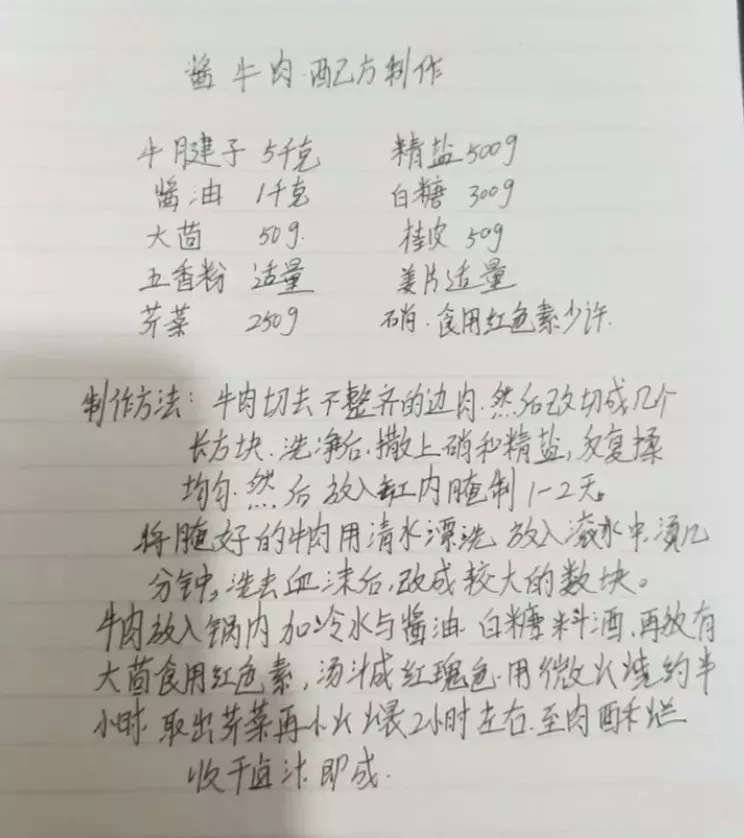 酱牛肉.配方制作
牛腱子 5千克 精盐500g
酱油 1千克 白糖 300g
大茴 50g. 桂皮 50g
五香粉 适量 姜片适量
芹菜 250g 硝.食用红色素少许.
制作方法：牛肉切去不整齐的边肉.然后改切成几个
长方块.洗净后.撒上硝和精盐,反复揉
均匀.然后放入缸内腌制1-2天。
将腌好的牛肉用清水漂洗 放入滚水中烫几
分钟,洗去血沫后,改成较大的数块。
牛肉放入锅内加冷水与酱油.白糖料酒.再放有
大茴食用红色素,汤汁成红瑰色.用微火烧约半
小时.取出芹菜再小火煨2小时左右.至肉酥烂
收干卤汁即成.